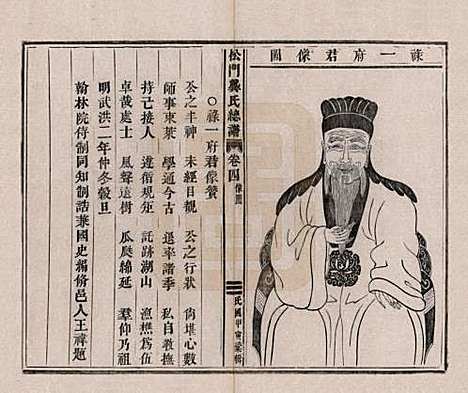 祿一府君像圖
松門龔氏總譜 卷四 像圖 民國甲寅纂輯
〇祿一府君像贊
公之丰神 未經目覩 公之行狀 尚堪心數
師事東萊 學通今古 退率諸季 私自教撫
持己接人 遵循規矩 託跡湖山 漁樵為伍
卓哉處士 風聲遠樹 瓜瓞綿延 羣仰乃祖
明武洪二年仲冬穀旦
翰林院侍制同知制誥兼國史編修邑人王禕題